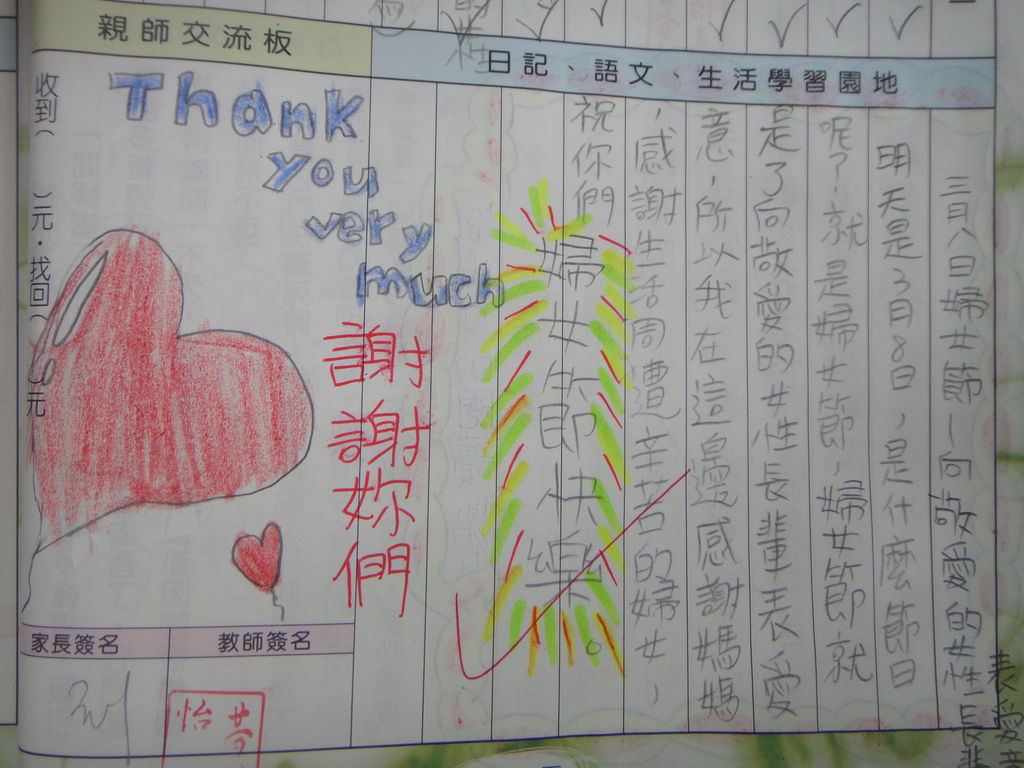 親師交流板
日記、語文、生活學習園地
三月八日婦女節—向敬愛的女性長輩
表愛意
明天是3月8日，是什麼節日
呢？就是婦女節，婦女節就
是了向敬愛的女性長輩表愛
意，所以我在這邊感謝媽媽
，感謝生活周遭辛苦的婦女，
祝你們
婦女節快樂。
Thank
you
very
much
謝謝妳們
收到（　）元・找回（　）元
家長簽名
教師簽名
怡菁